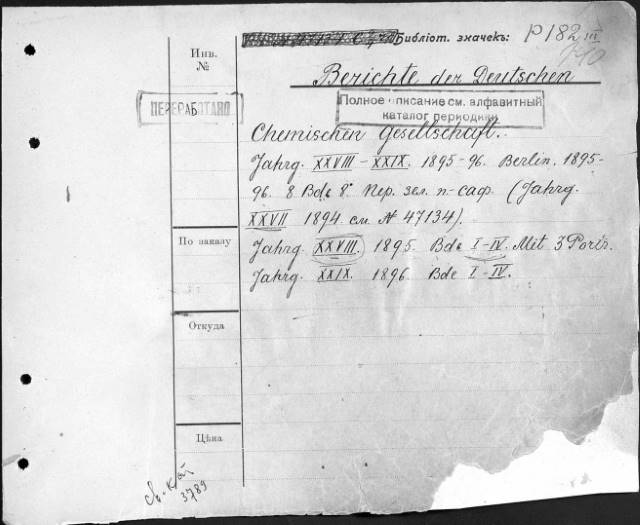 Библіот. значекъ: P 182 III
Инв.
№
Berichte der Deutschen
ПЕРЕРАБОТАНО
Полное описание см. алфавитный
каталог периодики
Chemischen Gesellschaft.
Jahrg. XXVIII - XXIX. 1895-96. Berlin. 1895-
96. 8 Bde 8° Пер. зел. п-саф. (Jahrg.
XXVII 1894 см. № 47134).
По заказу
Jahrg. XXVIII. 1895. Bde I-IV. Mit 3 Portr.
Jahrg. XXIX. 1896. Bde I-IV.
Откуда
Цѣна
3789